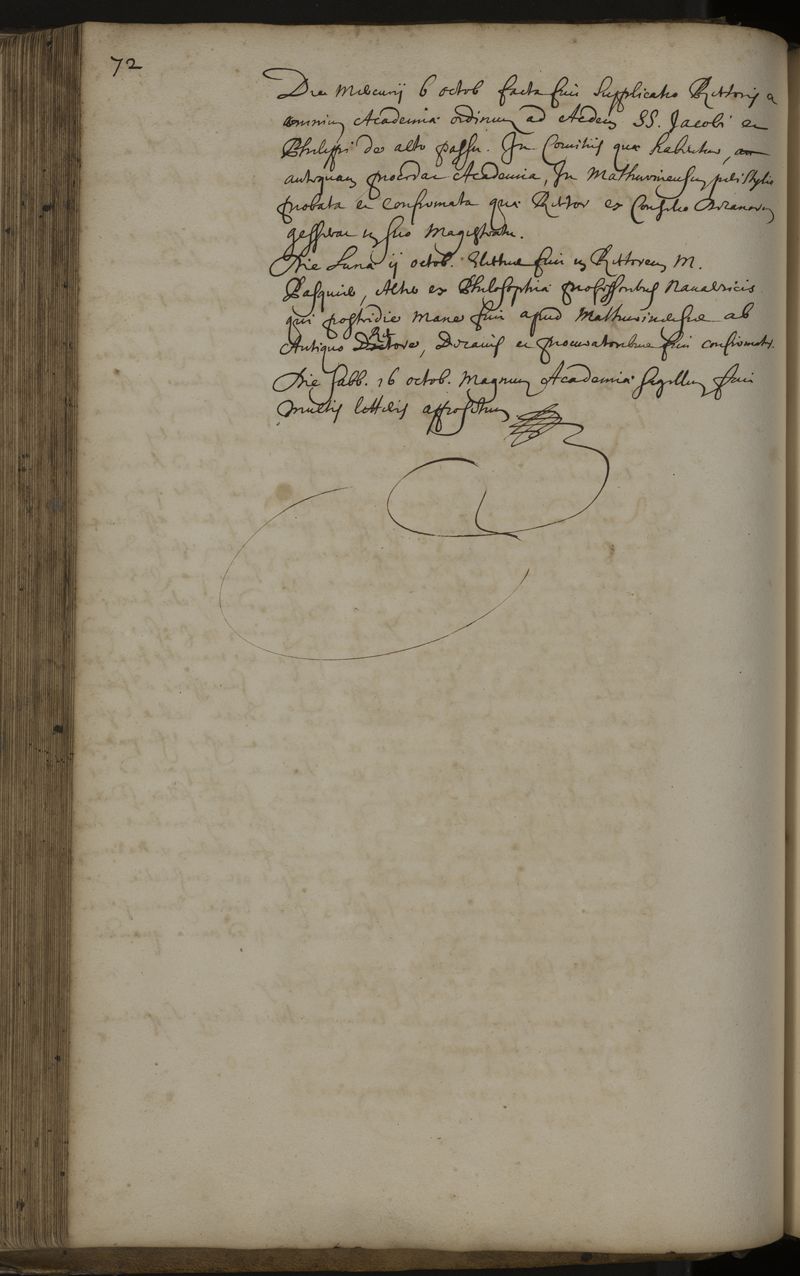 72
Die Mercurij 6 octob facta fuit Supplicatio Rectoris &
omnium Academiæ ordinum ad Aedem SS. Jacobi et
Philippi de alto passu. In Comitiis quæ habentur, an
antequam procedat Academia, In Mathurinensium peristylio
probata et confirmata quæ Rector ex Consilio Decanorum
gesserat in suo Magistratu.
Die Lunæ ij octob. Electus fuit in Rectorem M.
Pasquier, Alter ex Philosophiæ professoribus Navarricis
qui postridie mane fuit apud Mathurinenses ab
Antiquo Rectore, Decanis et procuratoribus fuit confirmatus.
Die Sabb. 16 octob. Magnum Academiæ sigillum fuit
multis litteris appositum